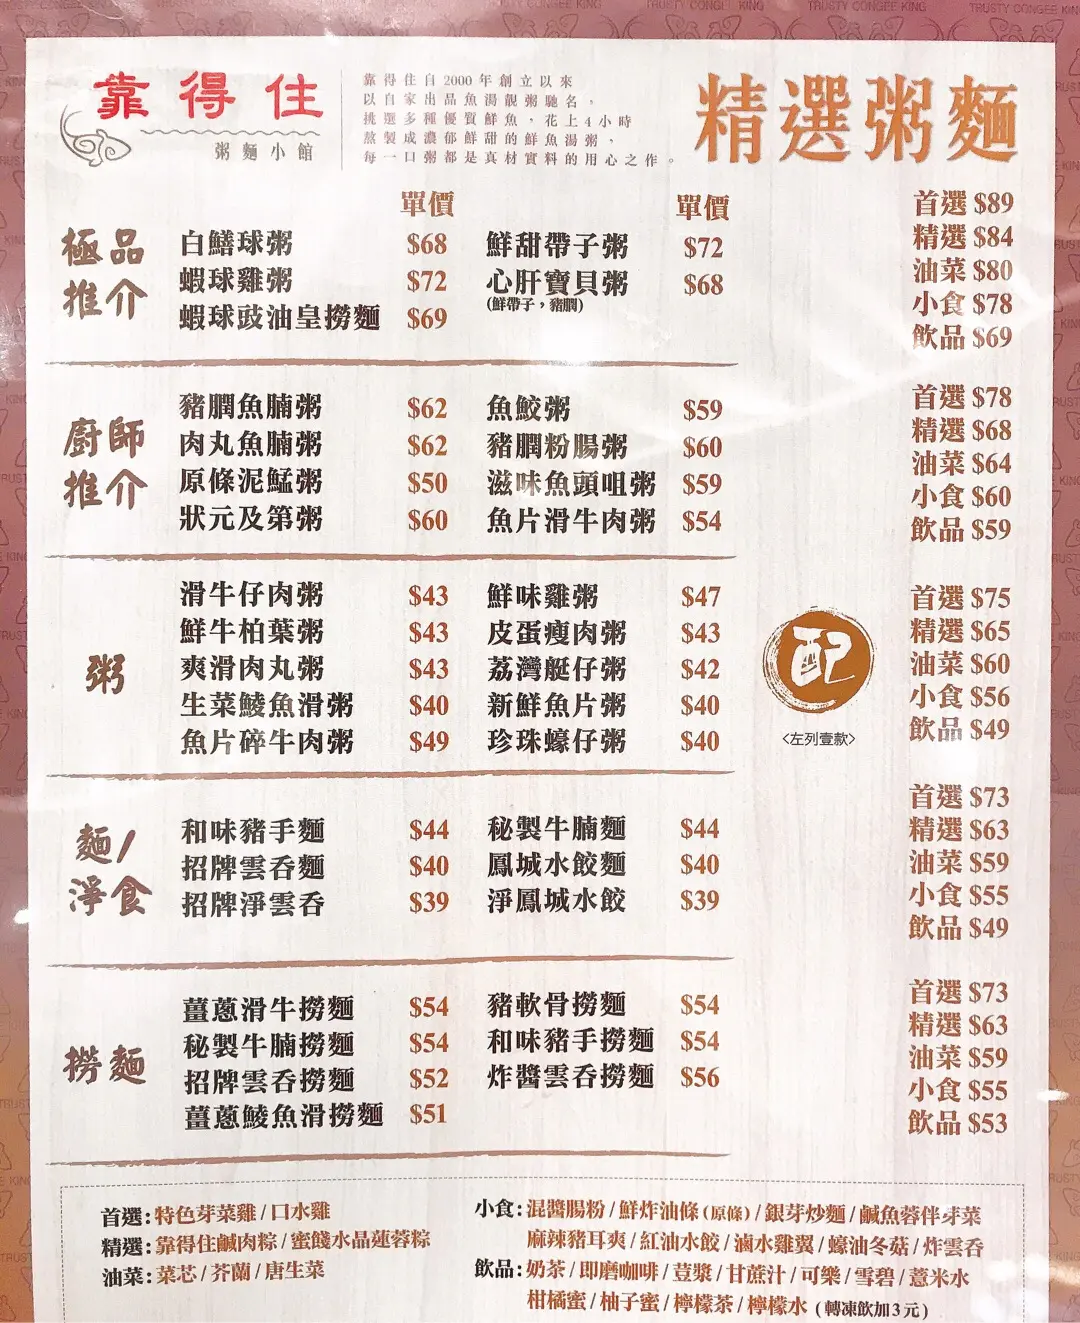 靠得住
粥麵小館
靠得住自2000年創立以來
以自家出品魚湯靚粥馳名，
挑選多種優質鮮魚，花上4小時
熬製成濃郁鮮甜的鮮魚湯粥，
每一口粥都是真材實料的用心之作。
精選粥麵
單價 單價
極品
推介
白鱔球粥 $68 鮮甜帶子粥 $72
蝦球雞粥 $72 心肝寶貝粥 $68
(鮮帶子，豬膶)
蝦球豉油皇撈麵 $69
首選 $89
精選 $84
油菜 $80
小食 $78
飲品 $69
廚師
推介
豬膶魚腩粥 $62 魚鮫粥 $59
肉丸魚腩粥 $62 豬膶粉腸粥 $60
原條泥鯭粥 $50 滋味魚頭咀粥 $59
狀元及第粥 $60 魚片滑牛肉粥 $54
首選 $78
精選 $68
油菜 $64
小食 $60
飲品 $59
粥
滑牛仔肉粥 $43 鮮味雞粥 $47
鮮牛柏葉粥 $43 皮蛋瘦肉粥 $43
爽滑肉丸粥 $43 荔灣艇仔粥 $42
生菜鯪魚滑粥 $40 新鮮魚片粥 $40
魚片碎牛肉粥 $49 珍珠蠔仔粥 $40
配
<左列壹款>
首選 $75
精選 $65
油菜 $60
小食 $56
飲品 $49
麵/
淨食
和味豬手麵 $44 秘製牛腩麵 $44
招牌雲吞麵 $40 鳳城水餃麵 $40
招牌淨雲吞 $39 淨鳳城水餃 $39
首選 $73
精選 $63
油菜 $59
小食 $55
飲品 $49
撈麵
薑蔥滑牛撈麵 $54 豬軟骨撈麵 $54
秘製牛腩撈麵 $54 和味豬手撈麵 $54
招牌雲吞撈麵 $52 炸醬雲吞撈麵 $56
薑蔥鯪魚滑撈麵 $51
首選 $73
精選 $63
油菜 $59
小食 $55
飲品 $53
首選：特色芽菜雞 / 口水雞
精選：靠得住鹹肉粽 / 蜜餞水晶蓮蓉粽
油菜：菜芯 / 芥蘭 / 唐生菜
小食：混醬腸粉 / 鮮炸油條 (原條) / 銀芽炒麵 / 鹹魚蓉伴芽菜
麻辣豬耳爽 / 紅油水餃 / 滷水雞翼 / 蠔油冬菇 / 炸雲吞
飲品：奶茶 / 即磨咖啡 / 荳漿 / 甘蔗汁 / 可樂 / 雪碧 / 薏米水
柑橘蜜 / 柚子蜜 / 檸檬茶 / 檸檬水 (轉凍飲加3元)